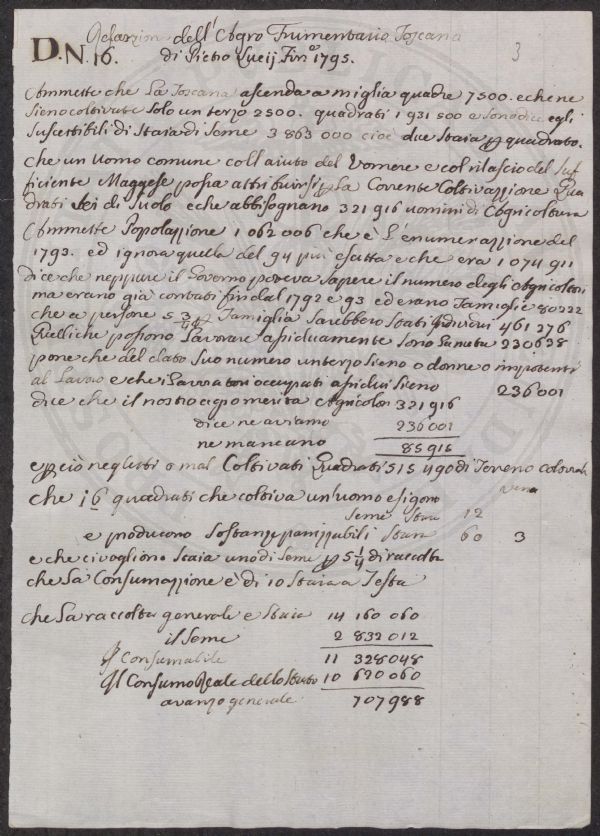 Relazione dell'Agro Frumentario Toscano 3
D.N. 16. di Pietro Lucij Fin.o 1795.
Ammette che La Toscana ascenda a miglia quadre 7500. e che ne
sieno coltivate solo un terzo 2500. quadrati 1 931 500 e sono dice egli
Suscettibili di Staia di Seme 3 863 000 cioè due Staia p quadrato.
che un Uomo comune coll'aiuto del Vomere e col rilascio del Suf
ficiente Maggese possa attribuirsi p La Corrente Coltivazzione Qua
drati Sei di Suolo e che abbisognano 321 916 uomini di Agricoltura
Ammette Popolazzione 1 062 006 che è L'enumerazzione del
1793. ed ignora quella del 94 più esatta e che era 1 074 911
dice che neppure il Governo poteva Sapere il numero degli Agricoltori
ma erano già contati fin dal 1792 e 93 ed erano Famiglie 80222
che a persone 5 3/4 p Famiglia Sarebbero Stati Individui 461 276
Quelli che possono Lavorare assiduamente Sono 230638
pone che del dato Suo numero un terzo Sieno o donne o impotenti
al Lavoro e che i Lavoratori occupati assidui Sieno 236001
dice che il nostro agro merita Agricoltori 321916
dice ne aviamo 236001
ne mancano 85915
e p ciò negletti o mal Coltivati Quadrati 515 490 di Terreno
che i 6 quadrati che coltiva un'uomo esigono
Seme Staia 12
e producono Sostanze panizzabili Staia 60 3
e che ci vogliono Staia uno di Seme p 5 1/4 di raccolta
che La Consumazzione è di 10 Staia a Testa
che La raccolta generale e Staia 14 160 060
il Seme 2 832 012
Consumabile 11 328048
Il Consumo Reale dello Stato 10 620 060
avanzo generale 707988